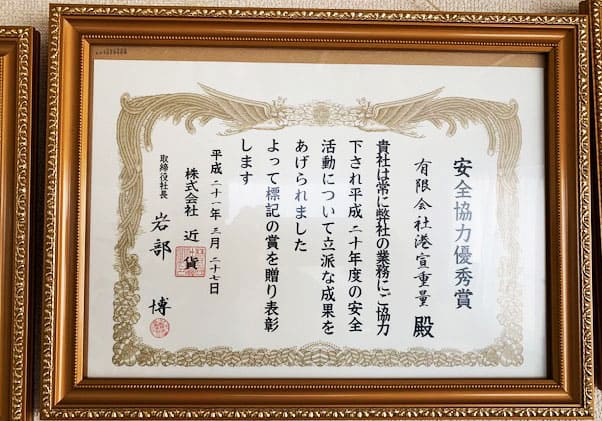 安全協力優秀賞
有限会社港宣重量 殿
貴社は常に弊社の業務にご協力
下され平成二十年度の安全
活動について立派な成果を
あげられました
よって標記の賞を贈り表彰
します
平成二十一年三月二十七日
株式会社 近貨
取締役社長 岩部 博